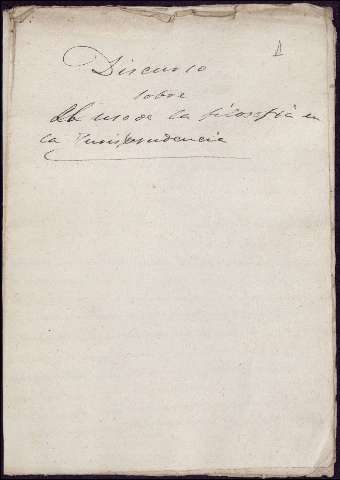 Discurso
sobre
el uso de la filosofia en
la Jurisprudencia